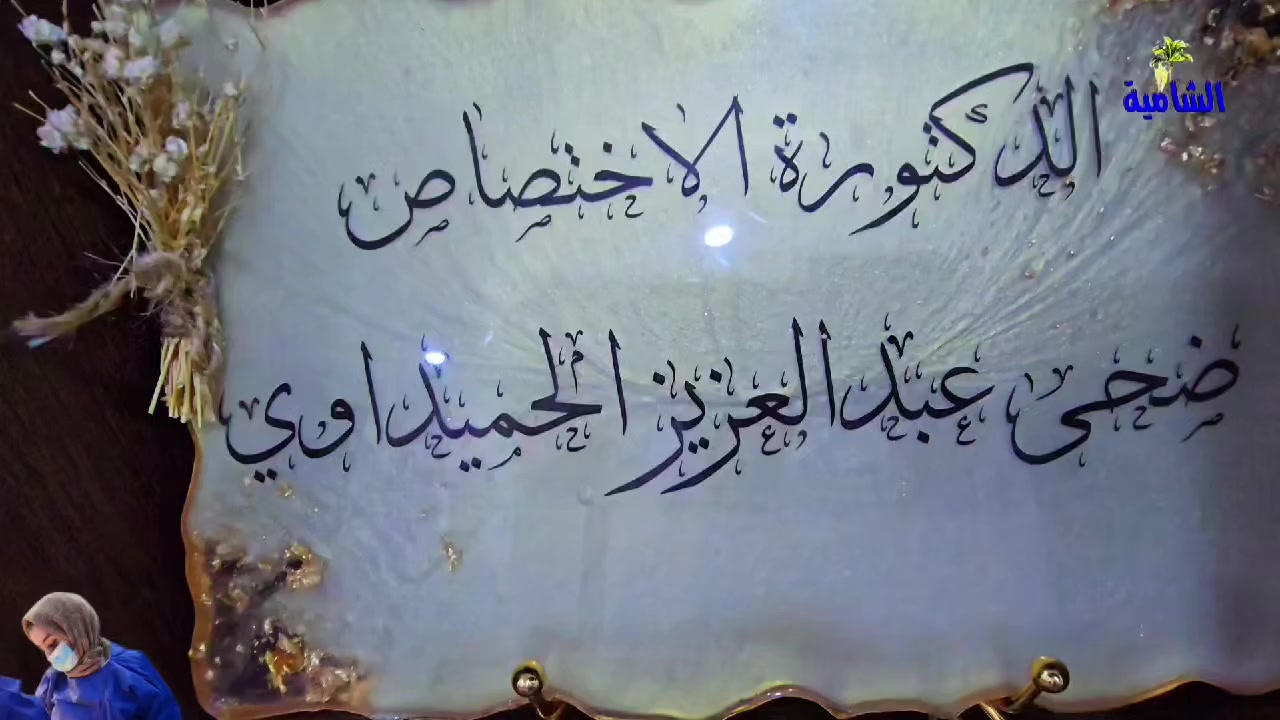 الشامية
الدكتورة الاختصاص
ضحى عبدالعزيز الحميداوي